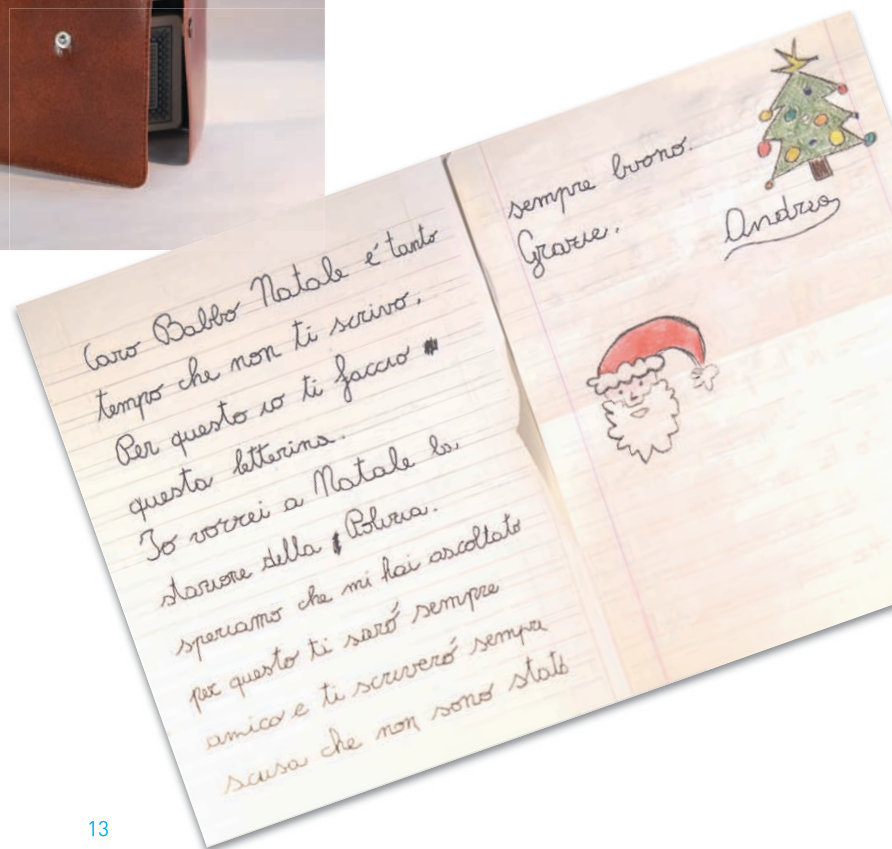 Caro Babbo Natale é tanto
tempo che non ti scrivo,
Per questo io ti faccio
questa letterina.
Io vorrei a Natale la,
stazione della Polizia.
speriamo che mi hai ascoltato
per questo ti saró sempre
amico e ti scriveró sempre
scusa che non sono stato
sempre buono.
Grazie.
Andrea
13